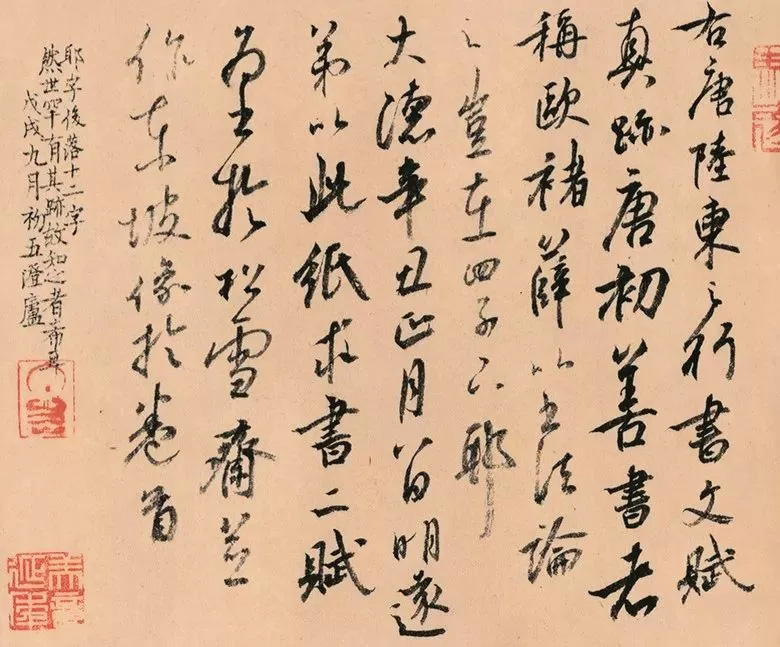 右唐陸東之行書文賦
真跡唐初善書者
稱歐褚薛以書法論
之豈在四子下耶
大德辛丑正月八日明遠
弟以此紙求書二賦
為書於松雪齋並
作東坡像於卷首
耶字後落十二字
然世罕有其跡故知之者希耳
戊戌九月初五隆廬